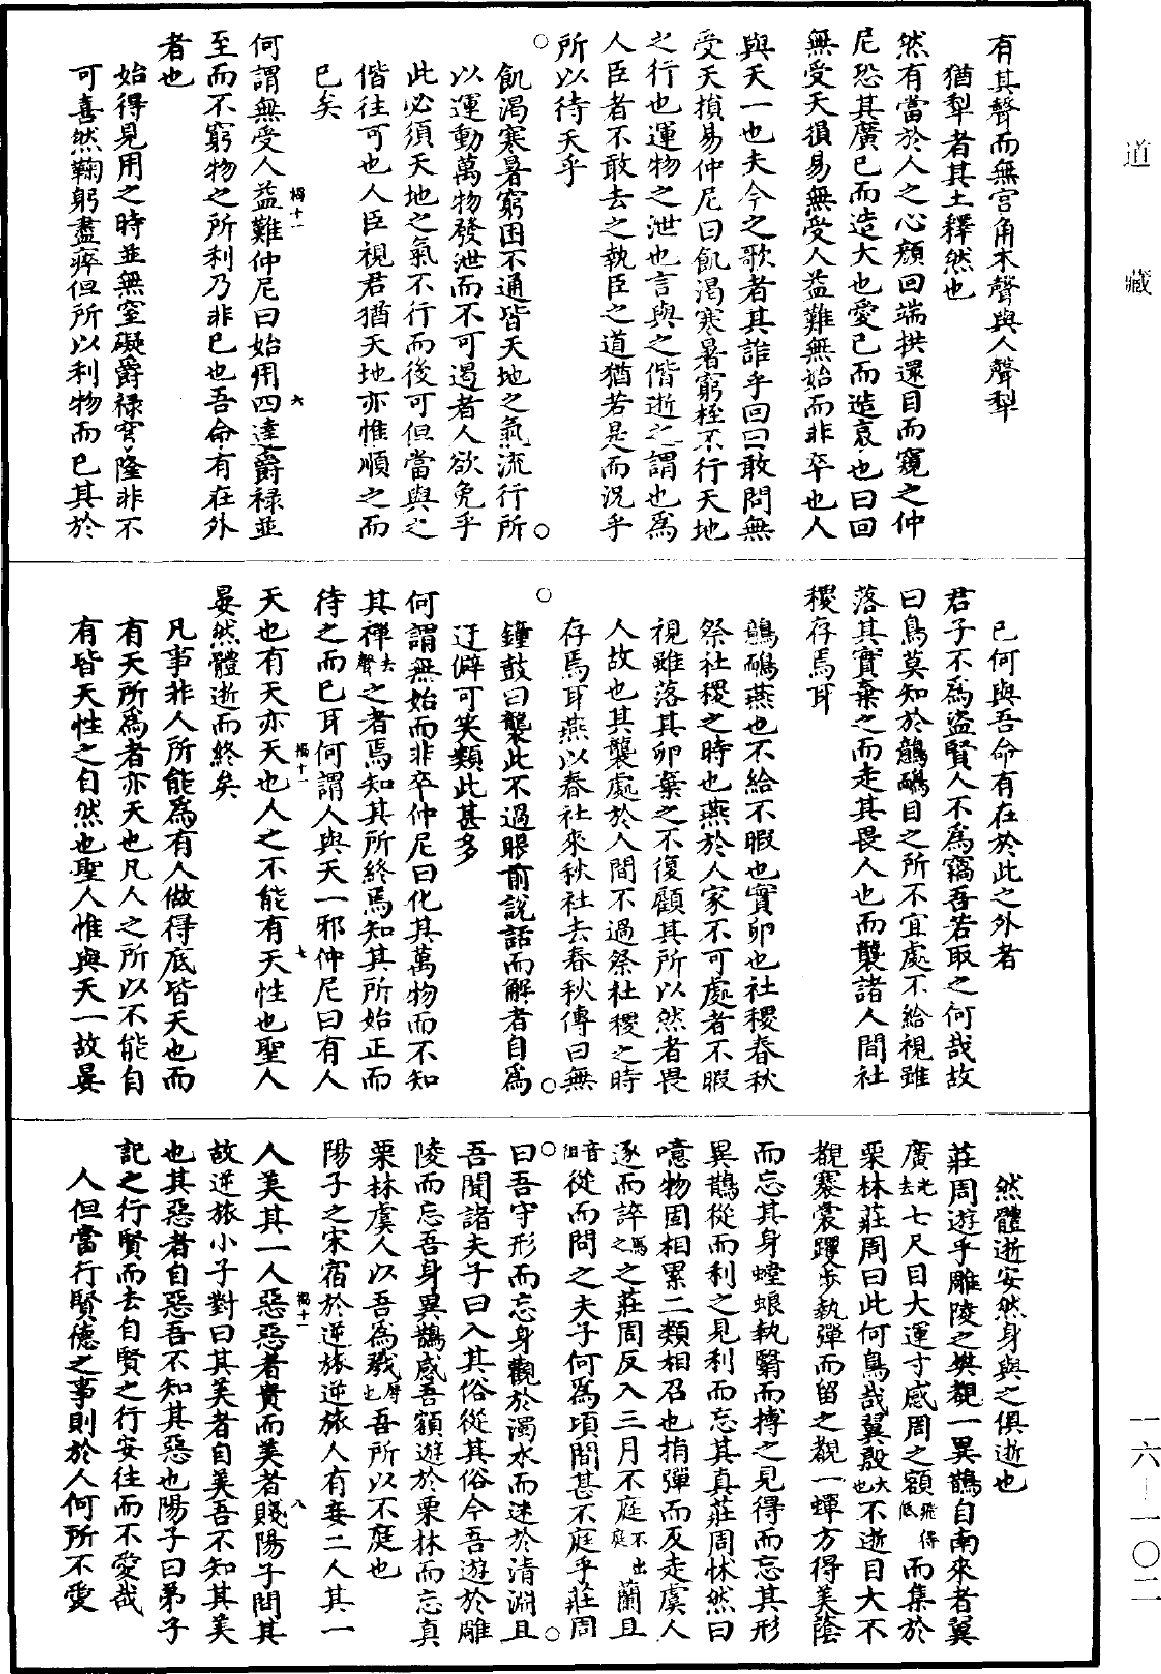 道藏
有其聲而無宮角木聲與人聲犁
猶犁者其土釋然也
然有當於人之心顏回端拱還目而窺之仲
尼恐其廣已而造大也愛已而造哀也曰回
無受天損易無受人益難無始而非卒也人
與天一也夫今之歌者其誰乎回曰敢問無
受天損易仲尼曰飢渴寒暑窮桎不行天地
之行也運物之泄也言與之偕逝之謂也為
人臣者不敢去之執臣之道猶若是而況乎
所以待天乎
○飢渴寒暑窮困不通皆天地之氣流行所○
以運動萬物發泄而不可遏者人欲免乎
此必須天地之氣不行而後可但當與之
偕往可也人臣視君猶天地亦惟順之而
已矣
何謂無受人益難仲尼曰始用四達爵祿並
獨十一 六
至而不窮物之所利乃非已也吾命有在外
者也
始得見用之時並無窒礙爵祿穹隆非不
可喜然鞠躬盡瘁但所以利物而已其於
已何與吾命有在於此之外者
君子不為盜賢人不為竊吾若取之何哉故
曰鳥莫知於鷾鴯目之所不宜處不給視雖
落其實棄之而走其畏人也而襲諸人間社
稷存焉耳
鷾鴯燕也不給不暇也實卵也社稷春秋
祭社稷之時也燕於人家不可處者不暇
視雖落其卵棄之不復顧其所以然者畏
人故也其襲處於人間不過祭社稷之時
存焉耳燕以春社來秋社去春秋傳曰無
○鐘鼓曰襲此不過眼前說話而解者自為○
迂僻可笑類此甚多
何謂無始而非卒仲尼曰化其萬物而不知
其禪去聲之者焉知其所終焉知其所始正而
待之而已耳何謂人與天一邪仲尼曰有人
獨十一 七
天也有天亦天也人之不能有天性也聖人
晏然體逝而終矣
凡事非人所能為有人做得底皆天也而
有天所為者亦天也凡人之所以不能自
有皆天性之自然也聖人惟與天一故晏
然體逝安然身與之俱逝也
莊周遊乎雕陵之樊覩一異鵲自南來者翼
廣光去七尺目大運寸感周之額飛得低而集於
栗林莊周曰此何鳥哉翼殷大也不逝目大不
覩蹇裳躩步執彈而留之覩一蟬方得美蔭
而忘其身螳蜋執翳而搏之見得而忘其形
異鵲從而利之見利而忘其真莊周怵然曰
噫物固相累二類相召也捐彈而反走虞人
逐而誶罵之之莊周反入三月不庭不出庭藺且
音沮從而問之夫子何為頃間甚不庭乎莊周
○曰吾守形而忘身觀於濁水而迷於清淵且○
吾聞諸夫子曰入其俗從其俗今吾遊於雕
陵而忘吾身異鵲感吾額遊於栗林而忘真
栗林虞人以吾為戮辱也吾所以不庭也
陽子之宋宿於逆旅逆旅人有妾二人其一
獨十一 八
人美其一人惡惡者貴而美者賤陽子問其
故逆旅小子對曰其美者自美吾不知其美
也其惡者自惡吾不知其惡也陽子曰弟子
記之行賢而去自賢之行安往而不愛哉
人但當行賢德之事則於人何所不愛
一六—一〇二